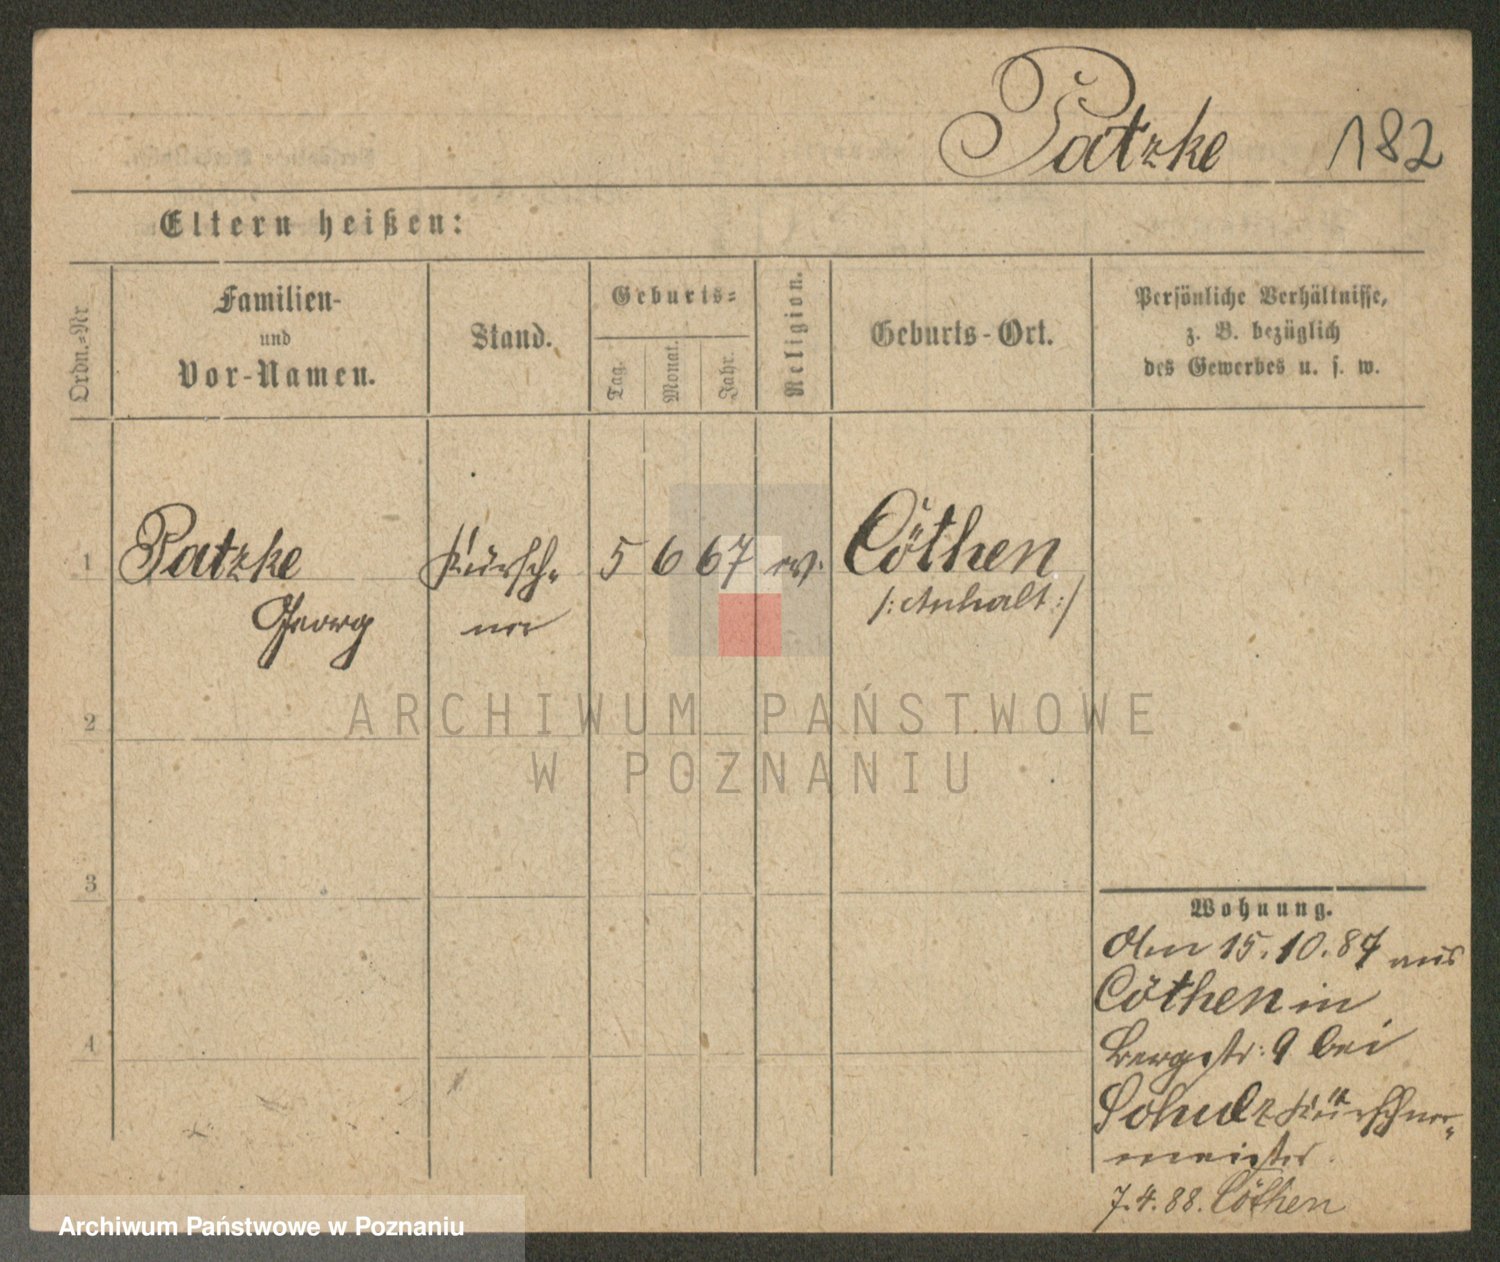 Patzke 182
Eltern heißen:
Ordn.-Nr
Familien-
und
Vor-Namen.
Stand.
Geburts-
Tag.
Monat.
Jahr.
Religion.
Geburts-Ort.
Persönliche Verhältnisse,
z. B. bezüglich
des Gewerbes u. s. w.
1 Patzke Kürsch- 5 6 67 ev. Cöthen
Georg ner /: Anhalt :/
2
ARCHIWUM PAŃSTWOWE
W POZNANIU
3
Wohnung.
Am 15.10.87 aus
Cöthen in
4
Bergstr: 9 bei
Schulz Kürschner-
meister.
7.4.88. Cöthen
Archiwum Państwowe w Poznaniu